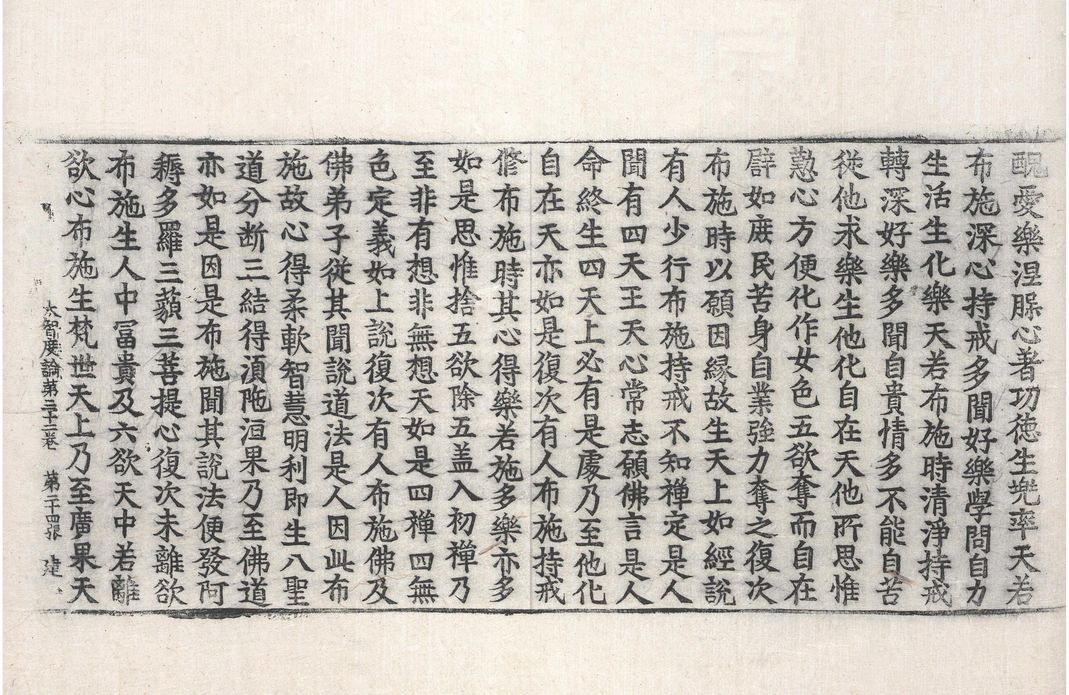 醜愛樂涅槃心著功徳生兠率天若
布施深心持戒多聞好樂學問自力
生活生化樂天若布施時清淨持戒
轉深好樂多聞自貴情多不能自苦
從他求樂生他化自在天他所思惟
懃心方便化作女色五欲奪而自在
譬如庻民苦身自業強力奪之復次
布施時以願因緣故生天上如經說
有人少行布施持戒不知禪定是人
聞有四天王天心常志願佛言是人
命終生四天上必有是處乃至他化
自在天亦如是復次有人布施持戒
修布施時其心得樂若施多樂亦多
如是思惟捨五欲除五盖入初禪乃
至非有想非無想天如是四禪四無
色定義如上說復次有人布施佛及
佛弟子從其聞說道法是人因此布
施故心得柔軟智慧明利即生八聖
道分断三結得湏陁洹果乃至佛道
亦如是因是布施聞其說法便發阿
耨多羅三藐三菩提心復次未離欲
布施生人中冨貴及六欲天中若離
欲心布施生梵世天上乃至廣果天
大智度論第二十二卷 第二十四張 建